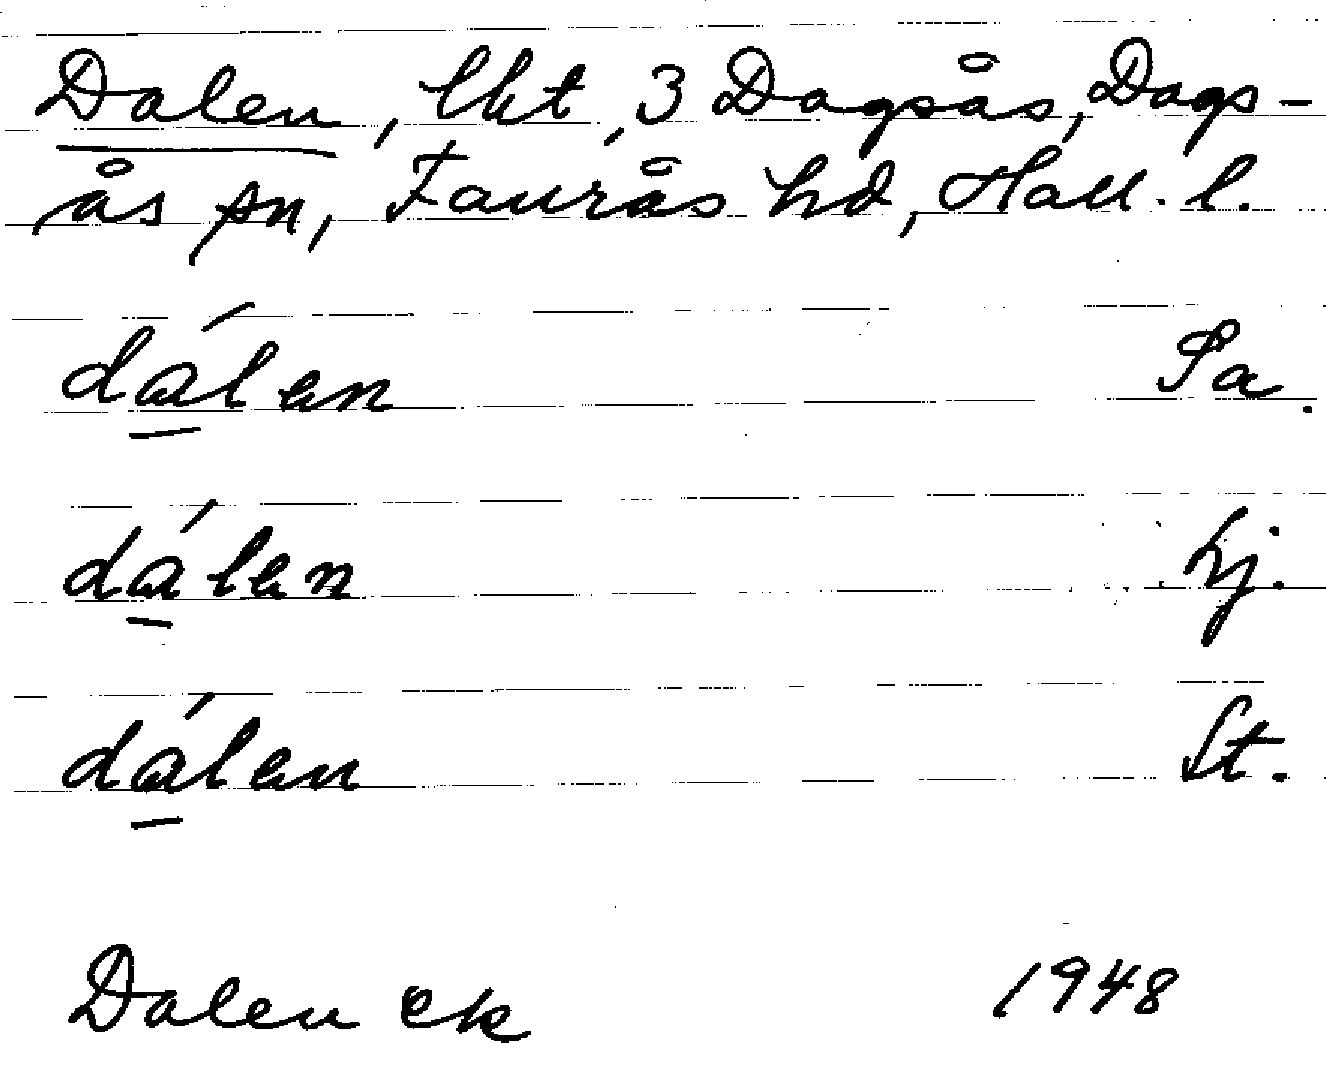 Dalen, lht, 3 Dagsås, Dags-
ås sn, Faurås hd, Hall. l.
dálen Sa.
dálen Hj.
dálen St.
Dalen ek 1948